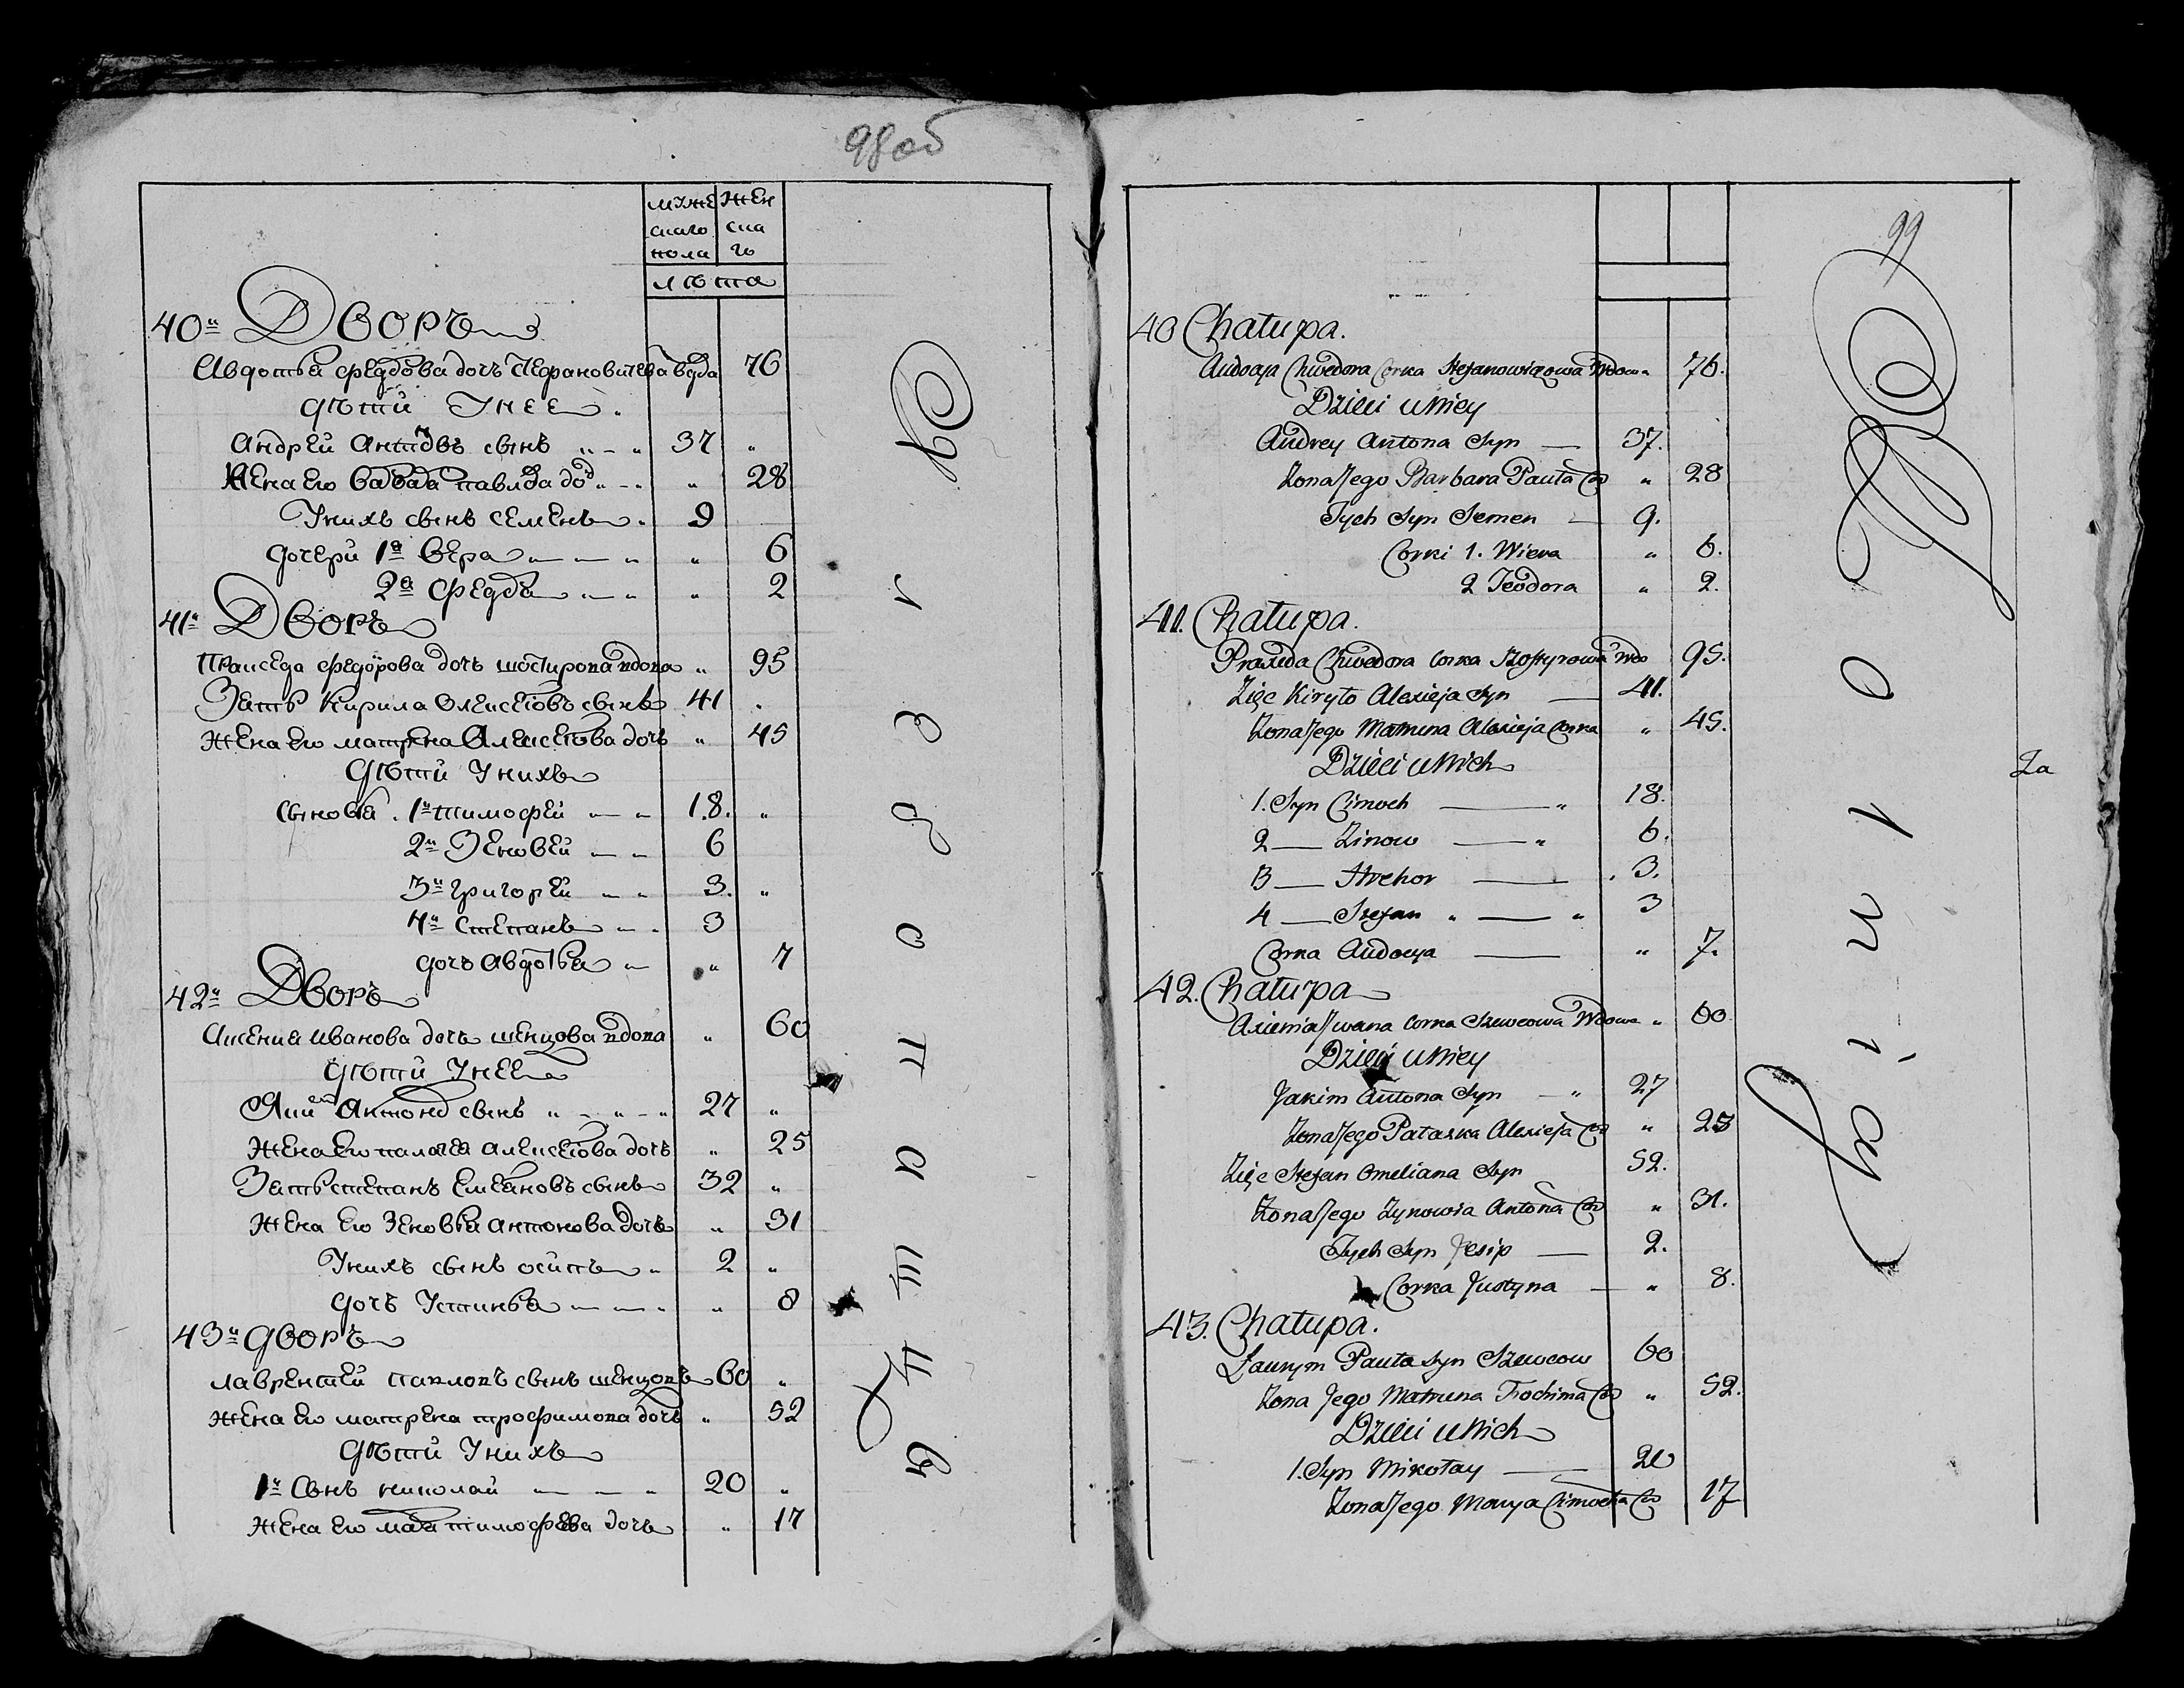 98об
муже женска
скаго ска
пола го
лѣта
40й Дворъ
Авдотья Федорова дочь Стефановичева вдова 76
дѣти У нее
Андрей Антоновъ сынъ 37 "
Жена его Варвара павлова доч " 28
У нихъ сынъ семенъ 9
дочери 1я Вера " 6
2я Федора " 2
41й Дворъ
Пракседа Федорова дочь шостирова вдова " 95
Зять Кирила Олексеювъ сынъ 41 "
жена его матрена Алексеюва дочь " 45
Дѣти У нихъ
Сыновья 1й тимофей 18. "
2й Зеновей 6
3й григорей 3. "
4й Степанъ 3
дочь Авдотья " 7
42й Дворъ
Аксения иванова дочь шевцова вдова " 60
дѣти У нее
Якимъ Антоновъ сынъ 27 "
Жена его палагея алексеюва дочь " 25
Зять степанъ Емеляновъ сынъ 32 "
Жена его Зеновья антонова дочь " 31
У нихъ сынъ осипъ 2 "
дочь Устинья " 8
43й дворъ
лаврентей павловъ сынъ шевцовъ 60 "
жена его матрена трофимова дочь " 52
Дѣти У нихъ
1й Сынъ николай 20 "
жена его марья тимофеева дочь " 17
99
40 Chatupa.
Audocja Chwedora Corka Stefanowiczowa Wdowa 76.
Dzieci u Niey
Andrey Antona Syn — 37.
Zona Jego Barbara Pauła Co " 28
Tych Syn Semen — 9.
Corki 1. Wiera " 6.
2 Teodora " 2.
41. Chatupa.
Praxeda Chwedora Corka Szostyrowa Wdo 95.
Zięc Kiryło Alexieja Syn — 41.
Zona Jego Matruna Alexieja Corka " 45.
Dzieci u Nich
1. Syn Cimoch — " 18.
2 — Zinow — " 6.
3 — Hrehor — 3.
4 — Stefan " — " 3
Corka Audocya — " 7.
42. Chatupa
Axienia Jwana Corka Szewcowa Wdowa " 60
Dzieci u Niey
Jakim Antona Syn — " 27
Zona Jego Patarka Alexieja Co " 25
Zięc Stefan Omeliana Syn 52.
Zona Jego Zynowia Antona Co " 31.
Tych Syn Jesip — 2.
Corka Justyna — " 8.
43. Chatupa.
Ławryn Pauła Syn Szewcow 60
Zona Jego Matruna Trochima Co " 52.
Dzieci u Nich
1. Syn Mikołay — 20
Zona Jego Marya Cimocha Co 17
Za